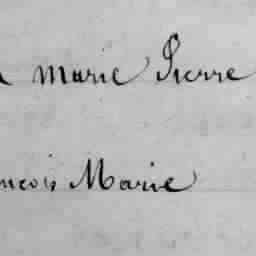 marie Pierre
ncois Marie